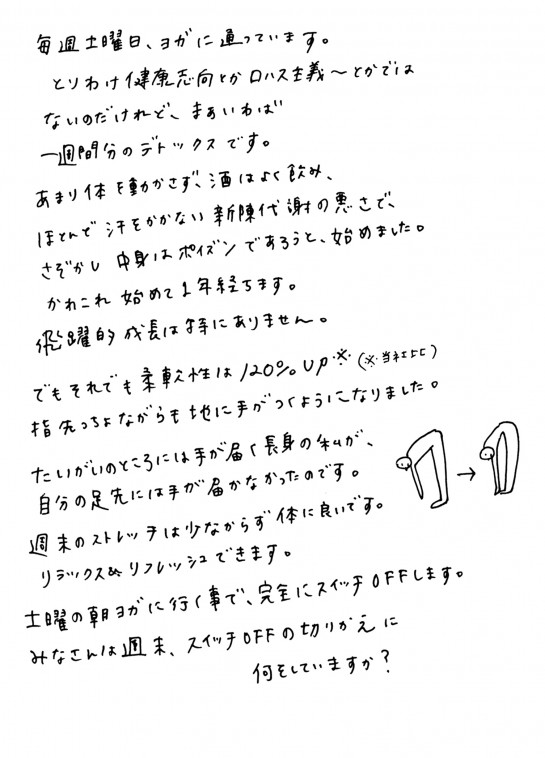 毎週土曜日、ヨガに通っています。
とりわけ健康志向とかロハス主義〜とかでは
ないのだけれど、まぁいわば
一週間分のデトックスです。
あまり体を動かさず、酒はよく飲み、
ほとんど汗をかかない新陳代謝の悪さで、
さぞかし中身はポイズンであろうと、始めました。
かれこれ始めて1年経ちます。
飛躍的成長は特にありません。
でもそれでも柔軟性は120%UP※(※当社比)
指先っちょながらも地に手がつくようになりました。
たいがいのところには手が届く長身の私が、
自分の足先には手が届かなかったのです。
→
週末のストレッチは少なからず体に良いです。
リラックス&リフレッシュできます。
土曜の朝ヨガに行く事で、完全にスイッチOFFします。
みなさんは週末、スイッチOFFの切りかえに
何をしていますか?